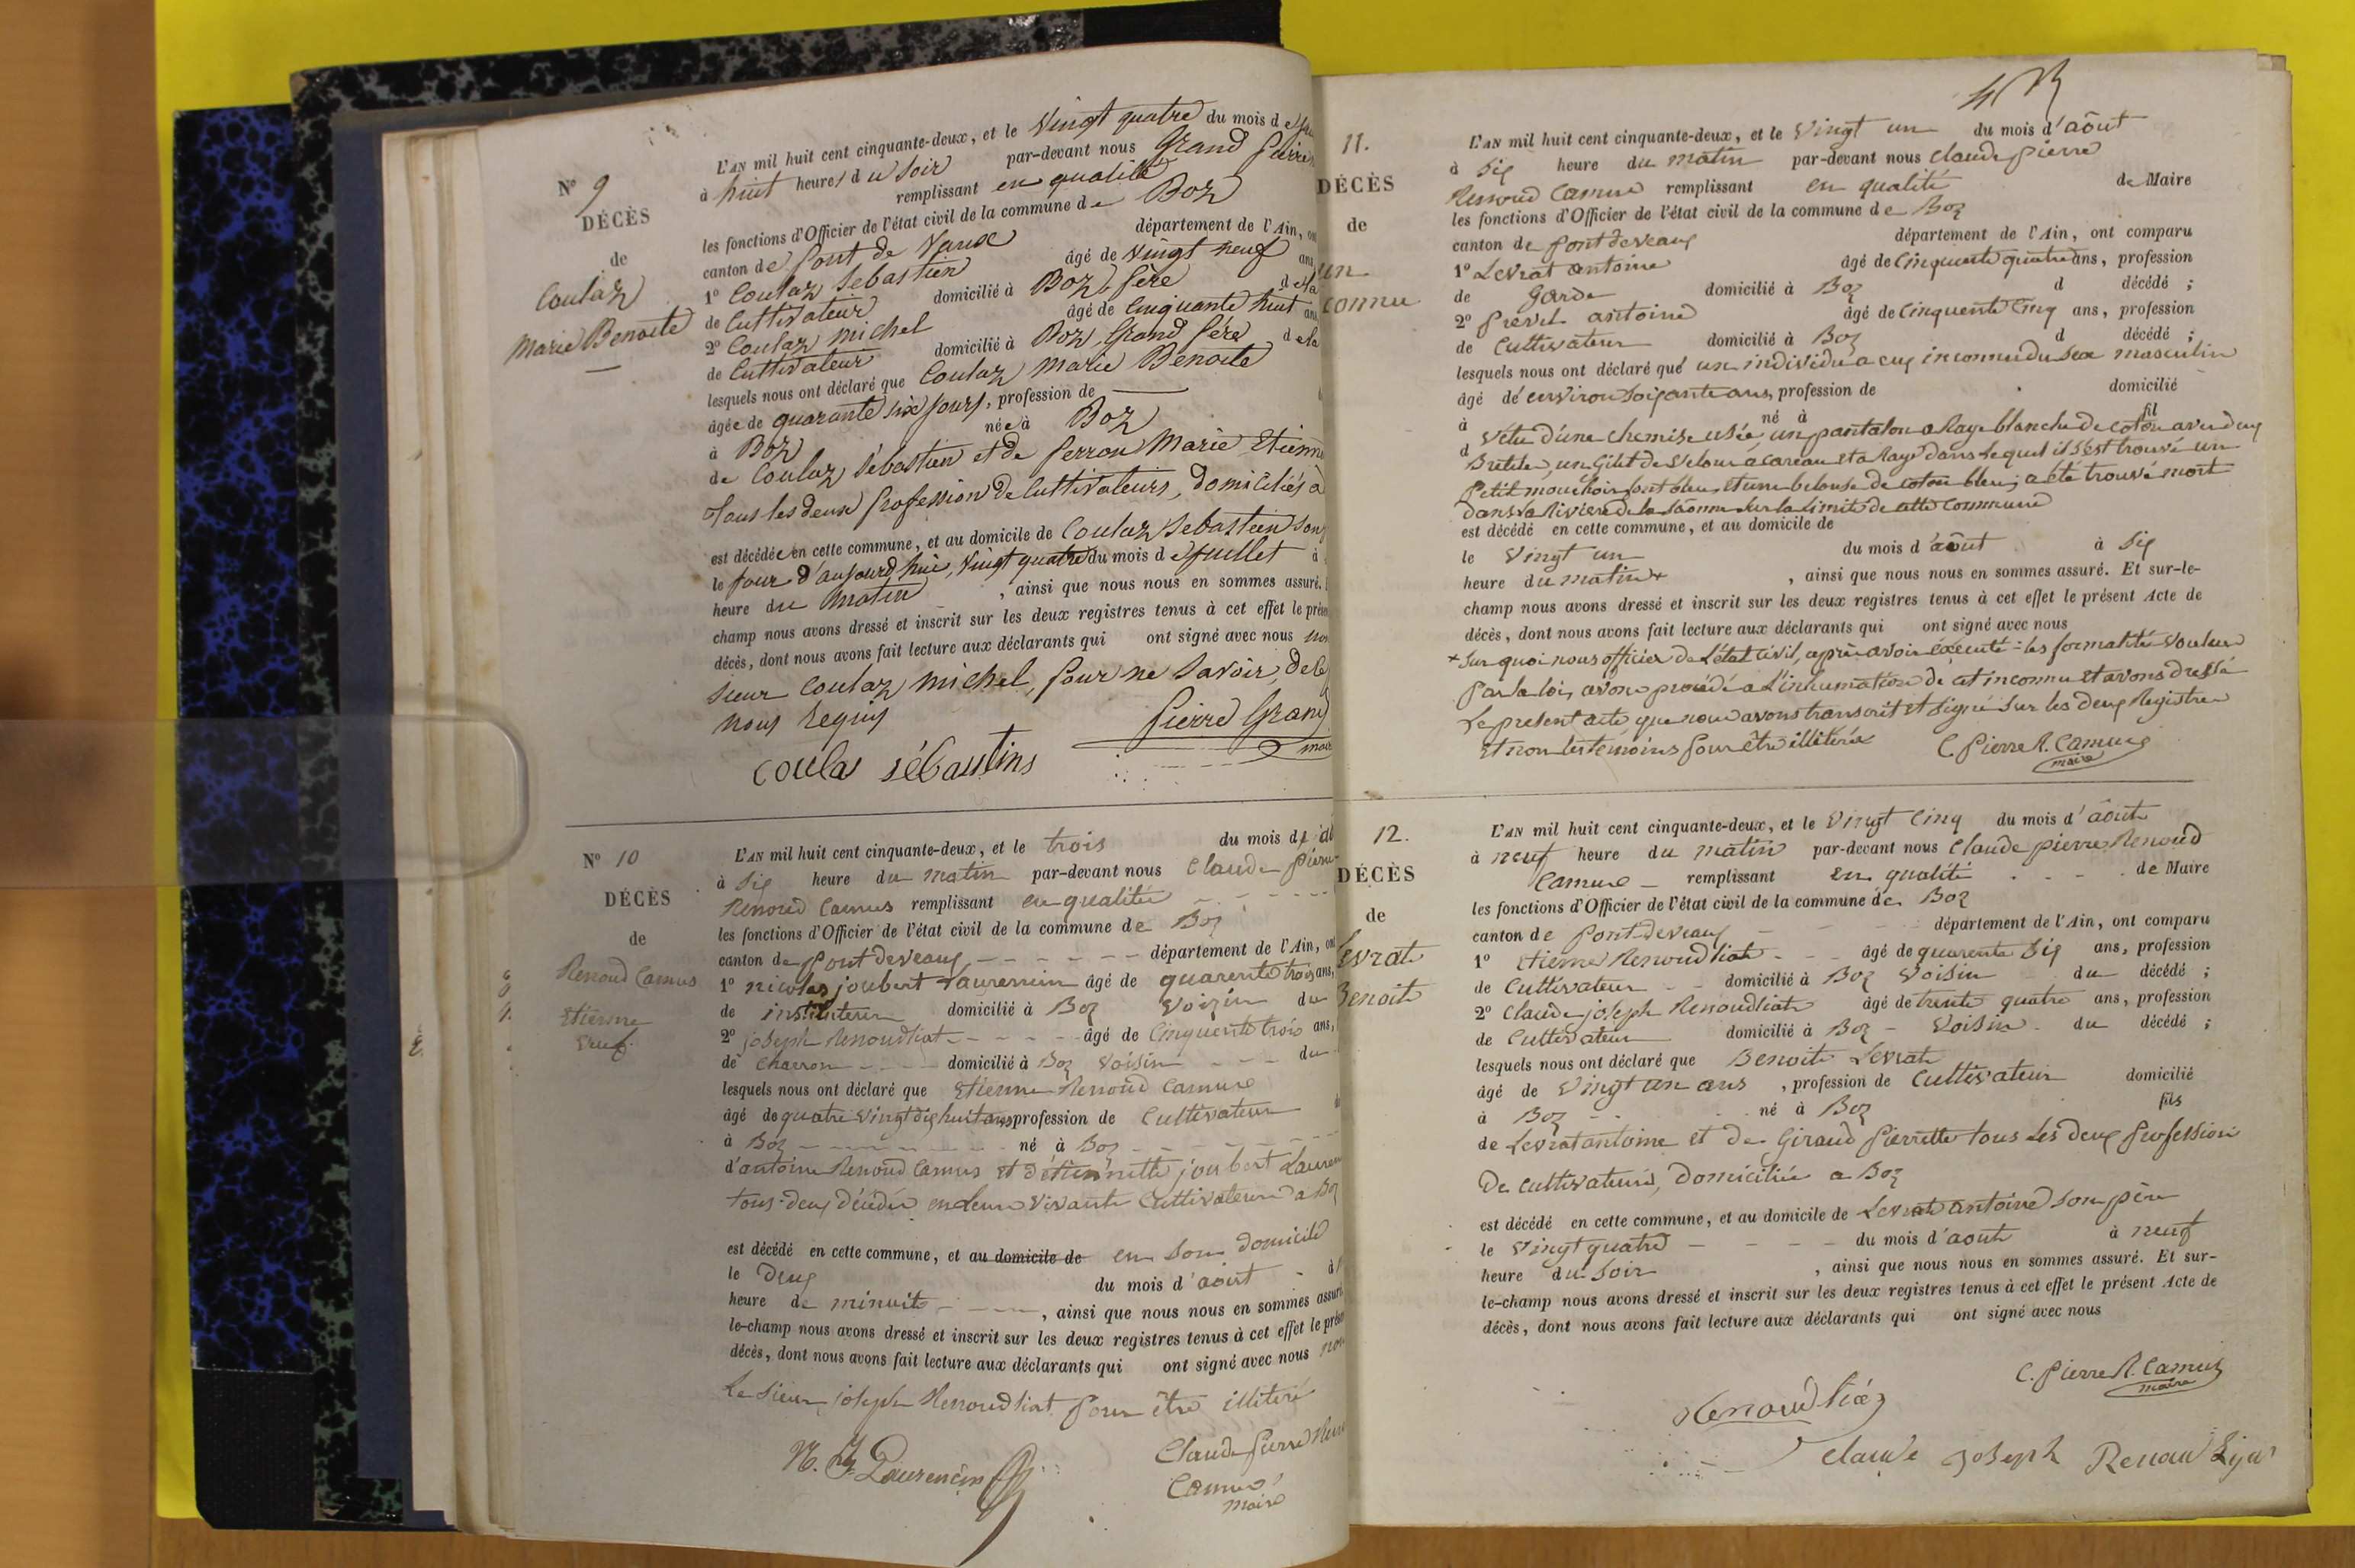 N° 9
DÉCÈS
de
Coulaz
Marie Benoite
L'AN mil huit cent cinquante-deux, et le Vingt quatre du mois de
à huit heures du Soir par-devant nous Grand Pierre
remplissant en qualité
les fonctions d'Officier de l'état civil de la commune de Boz
canton de Pont de Vaux département de l'Ain,
1° Coulaz Sebastien âgé de Vingt neuf ans
de Cultivateur domicilié à Boz, Père de la
2° Coulaz Michel âgé de Cinquante huit ans
de Cultivateur domicilié à Boz, Grand Père de la
lesquels nous ont déclaré que Coulaz Marie Benoite
âgée de quarante six jours, profession de
à Boz née à Boz
de Coulaz Sébastien et de Perron Marie Etienne
Tous les deux Profession de Cultivateurs, domiciliés à
est décédée en cette commune, et au domicile de Coulaz Sebastien son
le jour d'aujourd'hui, Vingt quatre du mois de Juillet à
heure du Matin , ainsi que nous nous en sommes assuré.
champ nous avons dressé et inscrit sur les deux registres tenus à cet effet le
décès, dont nous avons fait lecture aux déclarants qui ont signé avec nous non
Sieur Coulaz Michel, pour ne Savoir, de ce
nous Requis Pierre Grand
Coulas sébastins
N° 10
DÉCÈS
de
Renoud Camus
Etienne
Veuf.
L'AN mil huit cent cinquante-deux, et le trois du mois d'
à Six heure du matin par-devant nous Claude Pierre
Renoud Camus remplissant en qualité
les fonctions d'Officier de l'état civil de la commune de Boz
canton de Pontdeveaux département de l'Ain,
1° nicolas joubert Laurencin âgé de quarente trois ans,
de instituteur domicilié à Boz Voizin du
2° joseph Renoudliat âgé de Cinquente trois ans,
de Charron domicilié à Boz Voisin du
lesquels nous ont déclaré que Etienne Renoud Camus
âgé de quatre Vingt dix huit ans profession de Cultivateur
à Boz né à Boz
d'antoine Renoud Camus et d'étiennette joubert Lauren
tous deux décédés en leurs Vivants Cultivateurs a Boz
est décédé en cette commune, et au domicile de en Son domicile
le Deux du mois d'août à
heure de minuit , ainsi que nous nous en sommes assuré
le-champ nous avons dressé et inscrit sur les deux registres tenus à cet effet le
décès, dont nous avons fait lecture aux déclarants qui ont signé avec nous non
Le Sieur joseph Renoudliat Pour être illitéré
N. J. Laurencin Claude Pierre
Camus
maire
11.
DÉCÈS
de
un
connu
L'AN mil huit cent cinquante-deux, et le Vingt un du mois d'août
à Six heure du matin par-devant nous Claude Pierre
Renoud Camus remplissant en qualité de Maire
les fonctions d'Officier de l'état civil de la commune de Boz
canton de Pontdeveaux département de l'Ain, ont comparu
1° Levrat antoine âgé de Cinquente quatre ans, profession
de Garde domicilié à Boz d décédé ;
2° Prevel antoine âgé de Cinquente Cinq ans, profession
de Cultivateur domicilié à Boz d décédé ;
lesquels nous ont déclaré que un individu a eux inconnu du Sexe masculin
âgé de environ Soixante ans, profession de domicilié
à né à fil
d Vétu d'une Chemise usée, un pantalon a Raye blanche de coton avec deux
Bretelle, un Gilet de Velour a careau et a Raye dans lequel il S'est trouvé un
Petit mouchoir bleu, et une belouse de coton bleu; a été trouvé mort
dans la Rivière de la Sâonne Sur la Limite de cette Commune
est décédé en cette commune, et au domicile de
le Vingt un du mois d'août à Six
heure du matin + , ainsi que nous nous en sommes assuré. Et sur-le-
champ nous avons dressé et inscrit sur les deux registres tenus à cet effet le présent Acte de
décès, dont nous avons fait lecture aux déclarants qui ont signé avec nous
+ Sur quoi nous officier de L'état Civil, après avoir éxecuté les formalités voulues
Par la loi, avons procédé a L'inhumation de cet inconnu et avons dressé
Le present acte que nous avons transcrit et Signé Sur les deux Registres
Et non les temoins Pour être illitérés C. Pierre R. Camus
maire
12.
DÉCÈS
de
Levrat
Benoit
L'AN mil huit cent cinquante-deux, et le Vingt Cinq du mois d'août
à neuf heure du matin par-devant nous Claude pierre Renoud
Camus remplissant en qualité de Maire
les fonctions d'Officier de l'état civil de la commune de Boz
canton de Pontdeveaux département de l'Ain, ont comparu
1° Etienne Renoudliat âgé de quarente Six ans, profession
de Cultivateur domicilié à Boz Voisin du décédé ;
2° Claude joseph Renoudliat âgé de trente quatre ans, profession
de Cultivateur domicilié à Boz Voisin du décédé ;
lesquels nous ont déclaré que Benoit Levrat
âgé de Vingt un ans , profession de Cultivateur domicilié
à Boz né à Boz fils
de Levrat antoine et de Giraud Pierrette tous Les deux Profession
De Cultivateurs, Domiciliés a Boz
est décédé en cette commune, et au domicile de Levrat antoine Son père
le Vingt quatre du mois d'août à neuf
heure du Soir , ainsi que nous nous en sommes assuré. Et sur-
le-champ nous avons dressé et inscrit sur les deux registres tenus à cet effet le présent Acte de
décès, dont nous avons fait lecture aux déclarants qui ont signé avec nous
C. Pierre R. Camus
maire
Renoud liaz
Claude Joseph Renau Lya